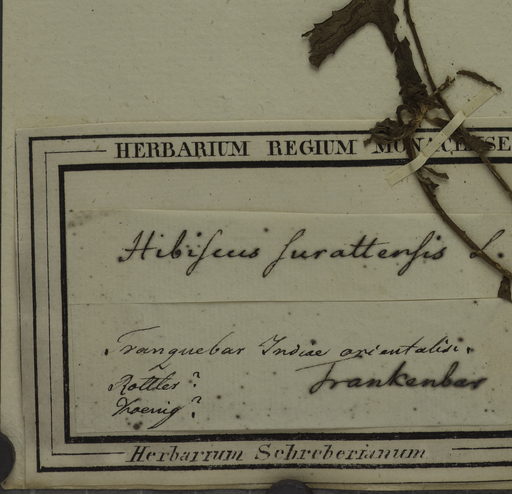 HERBARIUM REGIUM MONACENSE
Hibiſcus ſurattenſis L.
Tranquebar Indiae orientalis.
Rottler? Trankenbar
Koenig?
Herbarium Schreberianum